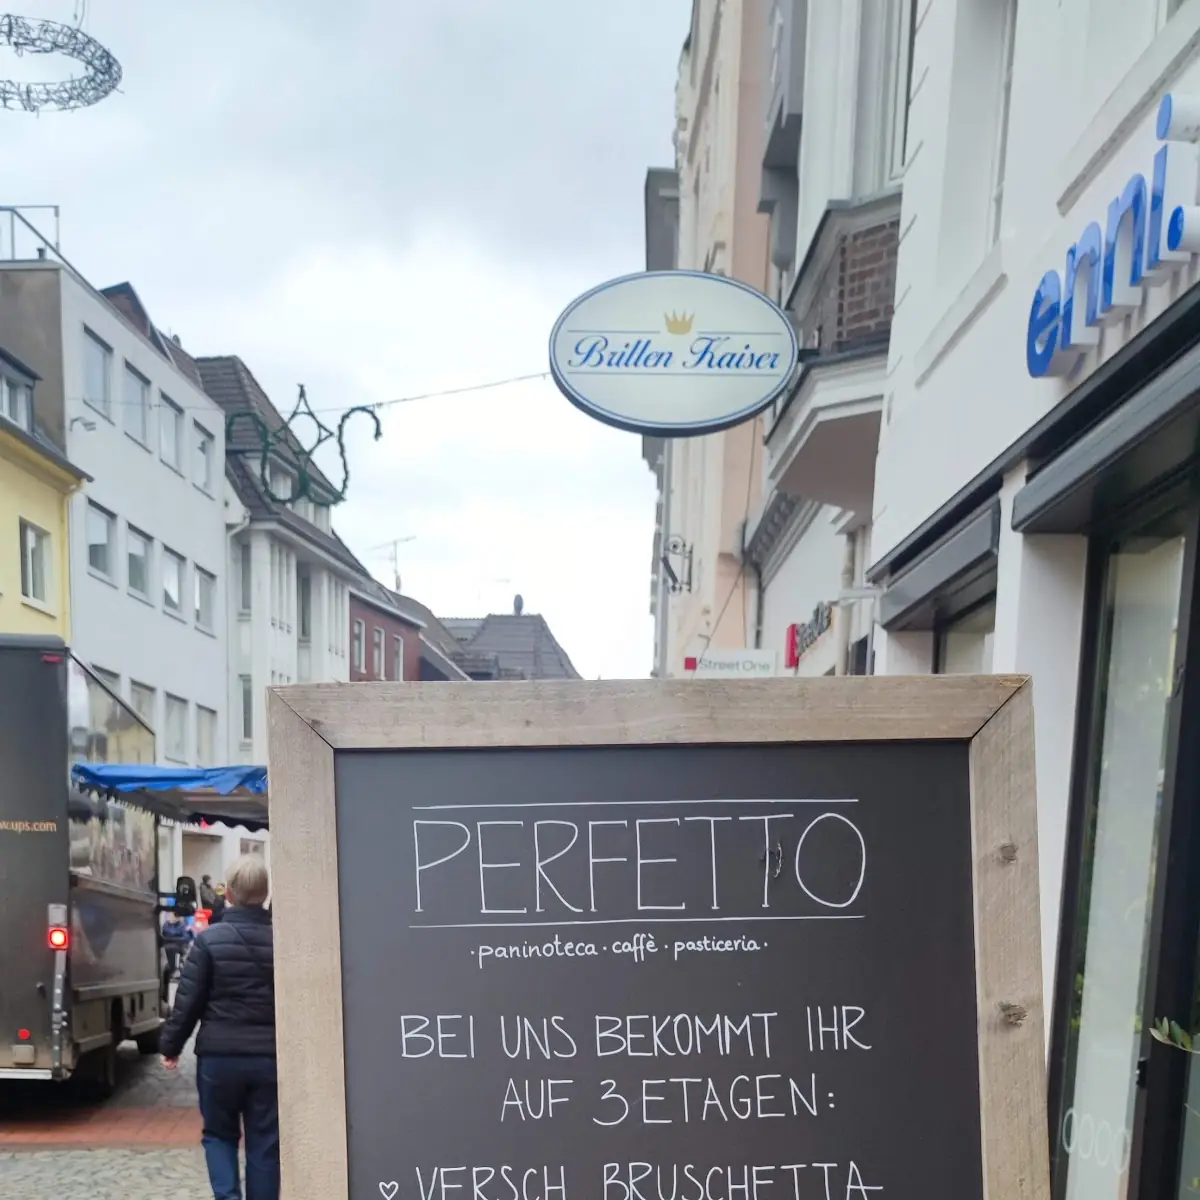 Brillen Kaiser
enni.
Street One
w.ups.com
PERFETTO
·paninoteca·caffè·pasticeria·
BEI UNS BEKOMMT IHR
AUF 3 ETAGEN:
♡ VERSCH. BRUSCHETTA